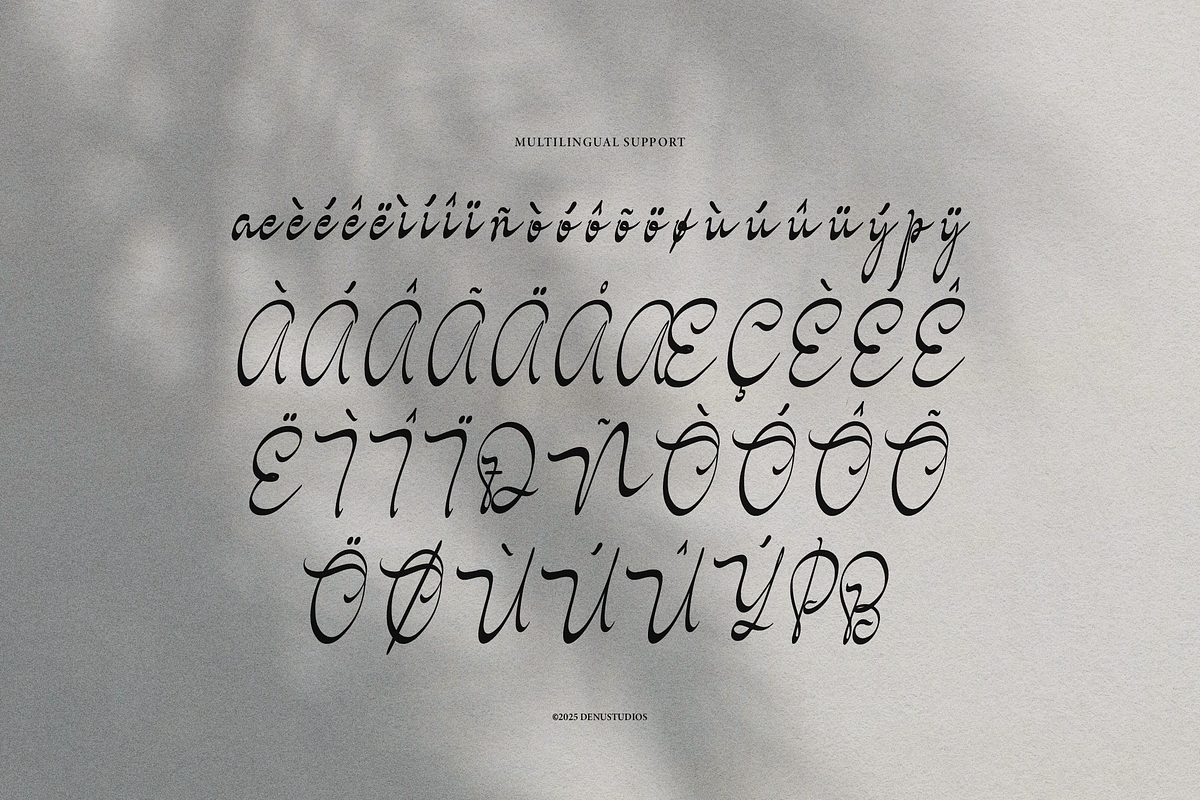 MULTILINGUAL SUPPORT
æèéêëìíîïñòóôõöøùúûüýþÿ
ÀÁÂÃÄÅÆÇÈÉÊ
ËÌÎÏÐÑÒÓÔÕ
ÖØÙÚÛÝÞß
©2025 DENUSTUDIOS